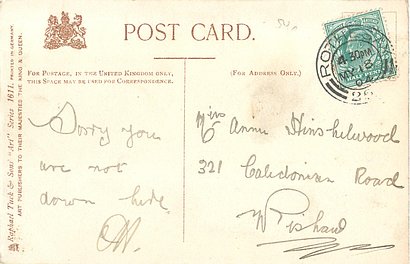 POST CARD.
FOR POSTAGE, IN THE UNITED KINGDOM ONLY,
THIS SPACE MAY BE USED FOR CORRESPONDENCE.
(FOR ADDRESS ONLY.)
Sorry you
are not
down here.
Miss Annie Hinshelwood
321 Caledonian Road
Wishaw
Raphael Tuck & Sons' "Art" Series 1611. PRINTED IN GERMANY.
ART PUBLISHERS TO THEIR MAJESTIES THE KING & QUEEN.